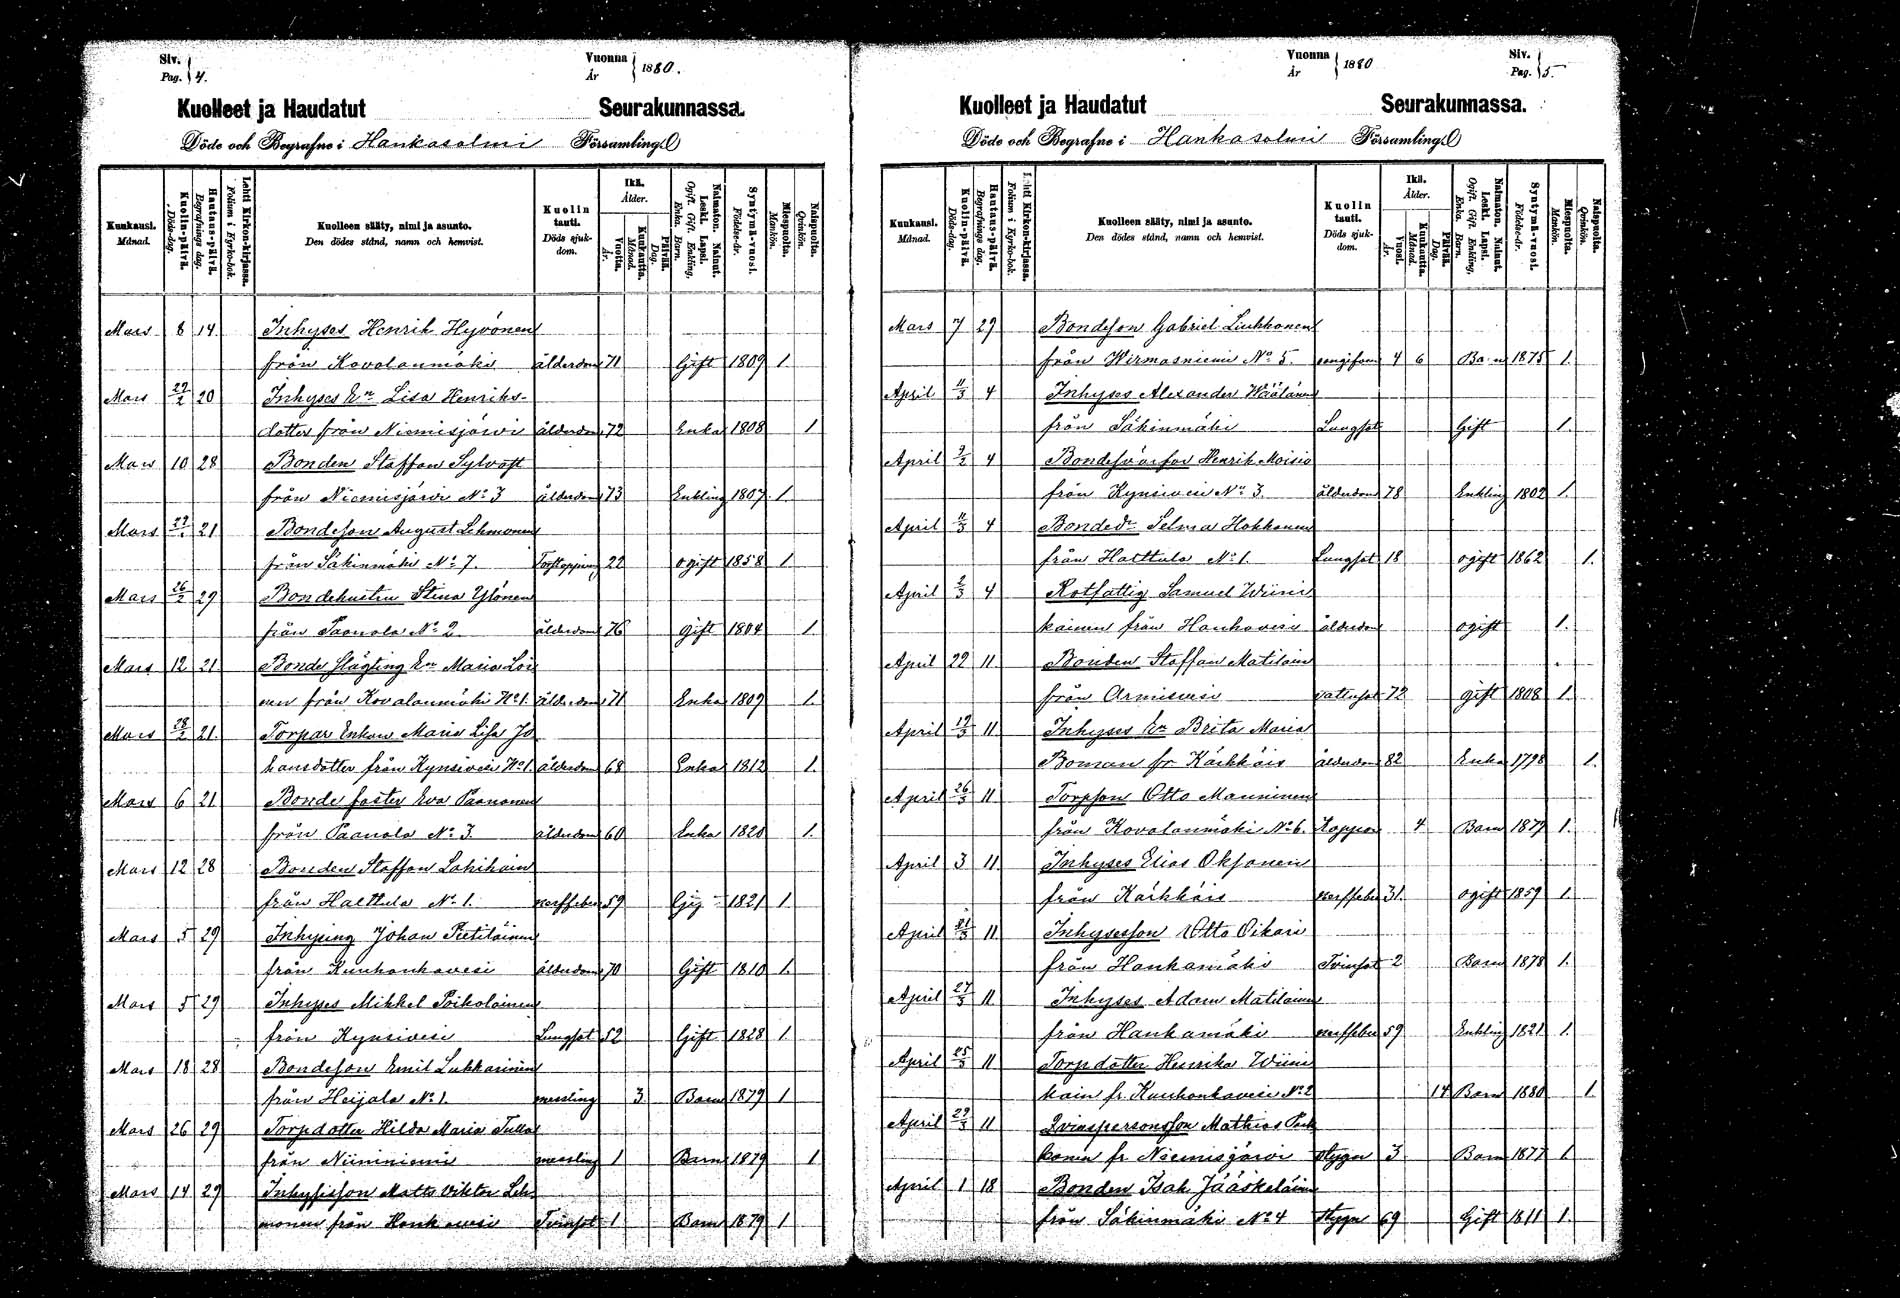 Siv. Pag. 4.
Vuonna År 1880.
Kuolleet ja Haudatut Seurakunnassa.
Döde och Begrafne i Hankasalmi Församling
Kuukausi. Månad.
Kuolin-päivä. Döds-dag.
Hautaus-päivä. Begrafnings dag.
Lehti Kirkon-kirjassa. Folium i Kyrko-bok.
Kuolleen sääty, nimi ja asunto. Den dödes stånd, namn och hemvist.
Kuolin tauti. Döds sjukdom.
Ikä. Ålder.
Vuotta. År.
Kuukautta. Månad.
Päivää. Dag.
Naimaton. Nainut. Leski. Lapsi. Ogift. Gift. Enkling. Enka. Barn.
Syntymä-vuosi. Födelse-år.
Miespuolta. Mankön.
Naispuolta. Qvinkön.
Mars 8 14 Inhyses Henrik Hyvönen
från Kovalanmäki ålderdom 71 Gift 1809 1.
Mars 29/2 20 Inhyses En Lisa Henriks-
dotter från Niemisjärvi ålderdom 72 Enka 1808 1
Mars 10 28 Bonden Staffan Sylvast
från Niemisjärvi No 3 ålderdom 73 Enkling 1807 1.
Mars 21 Bondeson August Lehmonen
från Säkinmäki No 7. 22 ogift 1858 1
Mars 26/2 29 Bondehustru Stina Ylönen
från Paanala No 2. ålderdom 76 gift 1804 1.
Mars 12 21 Bonde slägting En Maria Loi
nen från Kovalanmäki No 1. ålderdom 71 Enka 1809 1.
Mars 28/2 21. Torpar Enkan Maria Lisa Jo
hansdotter från Kynsivesi No 1. ålderdom 68 Enka 1812 1.
Mars 6 21 Bonde faster Eva Paananen
från Paanala No 3. ålderdom 60 Enka 1820 1.
Mars 12 28 Bonden Staffan Lahikain
från Halttula No 1. nerffeber 59 1821 1.
Mars 5 29 Inhysing Johan Pietiläinen
från Kuuhankavesi ålderdom 70 Gift 1810 1.
Mars 5 29 Inhyses Mikkel Poikolainen
från Kynsivesi Lungsot 52 Gift 1828 1.
Mars 18 28 Bondeson Emil Lukkarinen
från Heijala No 1. messling 3. Barn 1879 1
Mars 26 29 Torpdotter Hilda Maria Tulla
från Niininiemi messling 1 Barn 1879 1
Mars 14 29 Inhysisson Matts Viktor Leh
monen från Hankavesi Tvinsot 1 Barn 1879 1
Siv. Pag. 5.
Vuonna År 1880
Kuolleet ja Haudatut Seurakunnassa.
Döde och Begrafne i Hankasalmi Församling
Kuukausi. Månad.
Kuolin-päivä. Döds-dag.
Hautaus-päivä. Begrafnings dag.
Lehti Kirkon-kirjassa. Folium i Kyrko-bok.
Kuolleen sääty, nimi ja asunto. Den dödes stånd, namn och hemvist.
Kuolin tauti. Döds sjukdom.
Ikä. Ålder.
Vuosi. År.
Kuukautta. Månad.
Päivää. Dag.
Naimaton. Nainut. Leski. Lapsi. Ogift. Gift. Enkling. Enka. Barn.
Syntymä-vuosi. Födelse-år.
Miespuolta. Mankön.
Naispuolta. Qvinkön.
Mars 7 29 Bondeson Gabriel Liukkonen
från Wirmasniemi No 5. 4 6 Barn 1875 1.
April 11/3 4 Inhyses Alexander Wäätänen
från Säkinmäki Lungsot Gift 1.
April 9/2 4 Bondesvärfar Henrik Moisio
från Kynsivesi No 3. ålderdom 78 Enkling 1802 1.
April 11/3 4 Bonded:r Selma Hokkanen
från Halttula No 1. Lungsot 18 ogift 1862 1.
April 2/3 4 Rotfattig Samuel Wiini
kainen från Hankavesi ålderdom ogift 1.
April 22 11. Bonden Staffan Matilain
från Armisvesi vattusot 72 gift 1808 1.
April 19/3 11. Inhyses En Brita Maria
Boman fr Kärkkäis ålderdom 82 Enka 1798 1.
April 26/3 11 Torpson Otto Manninen
från Kovalanmäki No 6. Koppor 4 Barn 1879 1.
April 3 11. Inhyses Elias Oksanen
från Kärkkäis nerffeber 31. ogift 1859 1.
April 21/3 11. Inhysesson Otto Oikari
från Hankamäki Tvinsot 2 Barn 1878 1.
April 27/3 11 Inhyses Adam Matilainen
från Hankamäki nerffeber 59 Enkling 1821 1.
April 25/3 11 Torpdotter Henrika Wiini
kain fr. Kuuhankavesi No 2 14 Barn 1880 1
April 29/3 11 Qvinspersonsson Mathias Park
konen fr Niemisjärvi stygn 3 Barn 1877 1
April 1 18 Bonden Isak Jääskeläinen
från Säkinmäki No 4 stygn 69 Gift 1811 1.